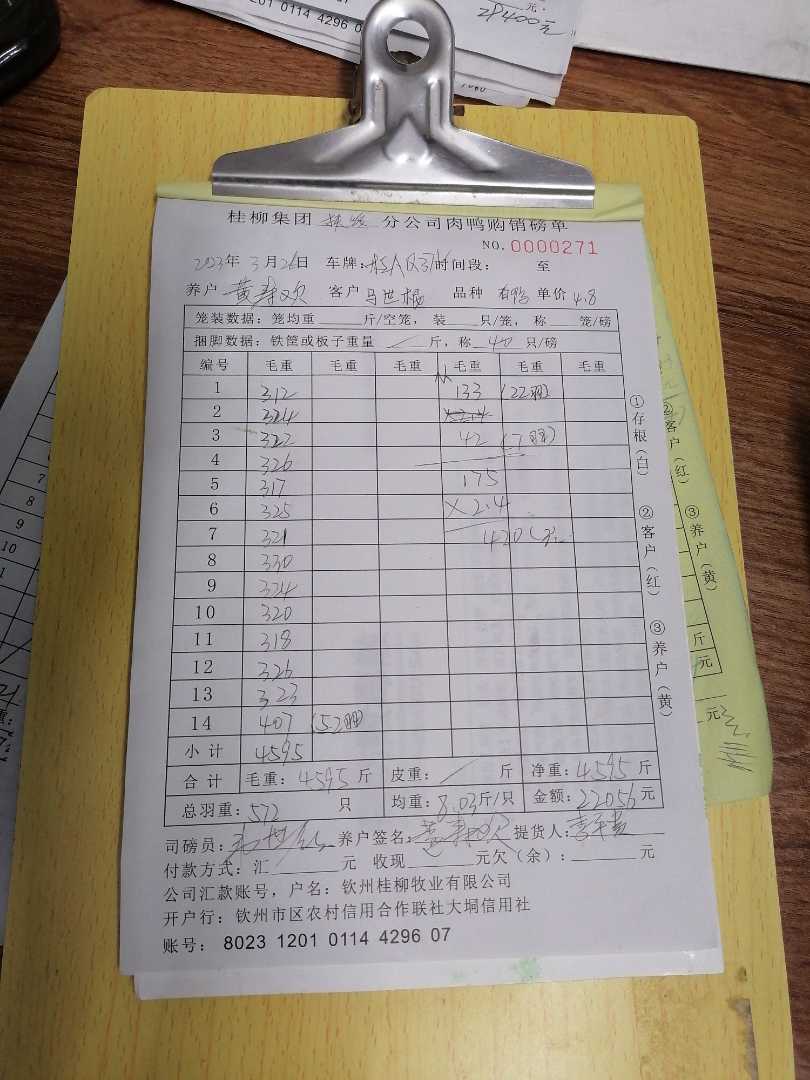 元
1201 0114 4296 0
28400元
桂柳集团 分公司肉鸭购销磅单
NO.0000271
2023年 3月26日 车牌: 时间段: 至
养户 黄寿欢 客户 马世根 品种 单价 4.8
笼装数据: 笼均重 斤/空笼, 装 只/笼, 称 笼/磅
捆脚数据: 铁筐或板子重量 / 斤, 称 40 只/磅
编号 毛重 毛重 毛重 毛重 毛重 毛重
1 312 133 (22羽)
2 324
3 322 42 (7羽)
4 326
5 317 175
6 325 ×2.4
7 321 420
8 330
9 324
10 320
11 318
12 326
13 323
14 407 (52羽)
小计 4595
合计 毛重: 4595 斤 皮重: / 斤 净重: 4595 斤
总羽重: 572 只 均重: 8.03斤/只 金额: 22056 元
司磅员: 养户签名: 黄寿欢 提货人:
付款方式: 汇 元 收现 元欠(余): 元
公司汇款账号, 户名: 钦州桂柳牧业有限公司
开户行: 钦州市区农村信用合作联社大垌信用社
账号: 8023 1201 0114 4296 07
①存根(白) ②客户(红) ③养户(黄)
②客户(红) ③养户(黄)
斤
元
元
7
8
9
10